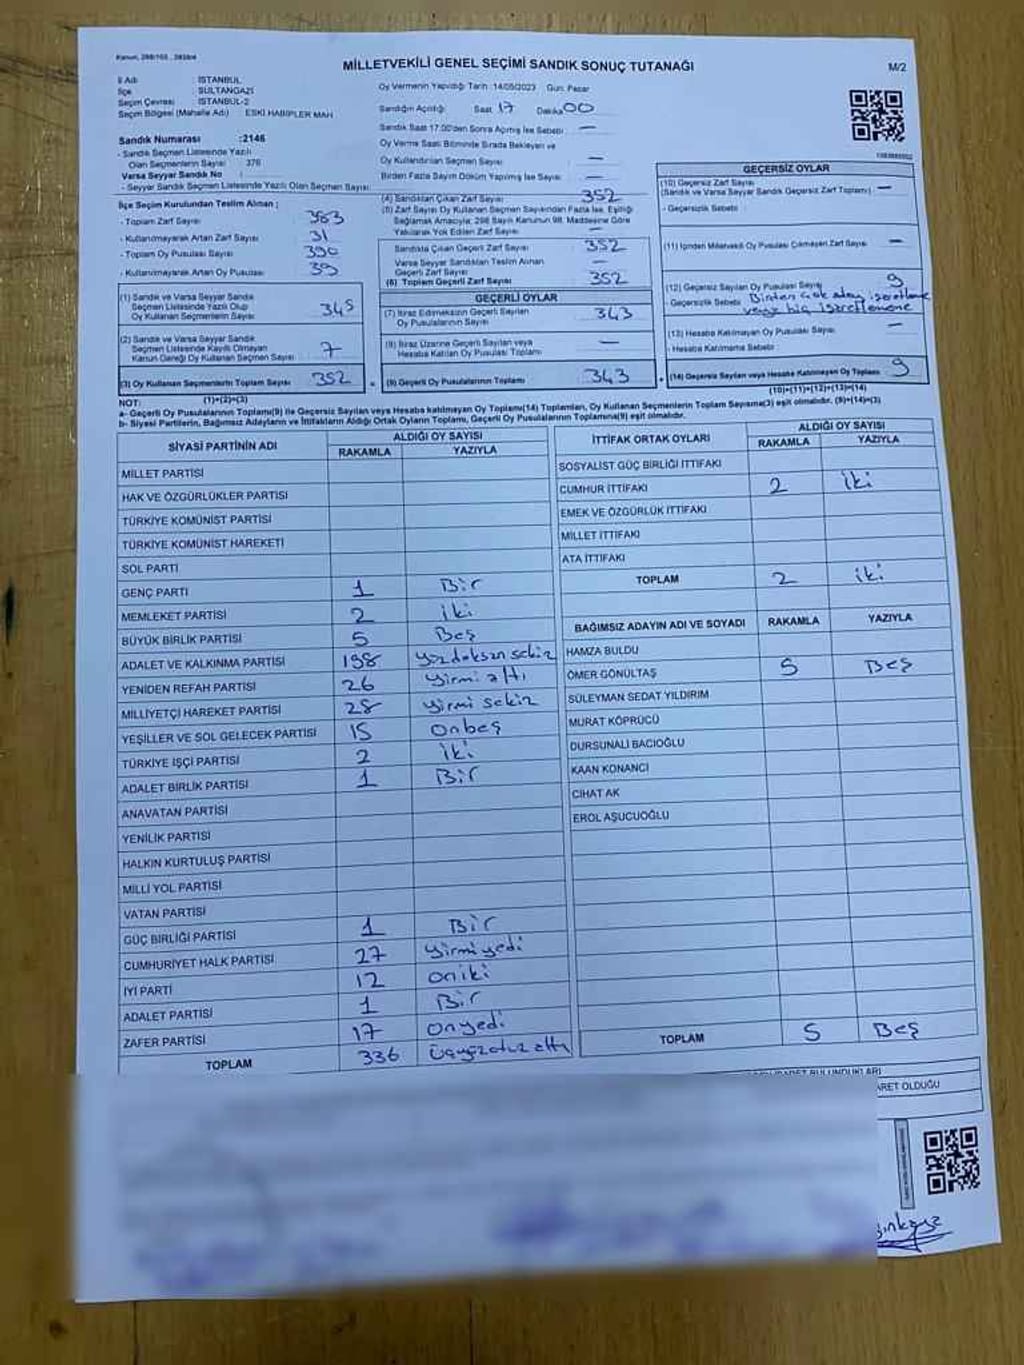 Kanun, 298/105 , 2839/4
MİLLETVEKİLİ GENEL SEÇİMİ SANDIK SONUÇ TUTANAĞI
M/2
İl Adı : İSTANBUL
İlçe : SULTANGAZİ
Seçim Çevresi : İSTANBUL-2
Seçim Bölgesi (Mahalle Adı) : ESKİ HABİPLER MAH
Sandık Numarası :2146
- Sandık Seçmen Listesinde Yazılı
Olan Seçmenlerin Sayısı : 376
Varsa Seyyar Sandık No :
- Seyyar Sandık Seçmen Listesinde Yazılı Olan Seçmen Sayısı:
Oy Vermenin Yapıldığı Tarih :14/05/2023 Gün: Pazar
Sandığın Açıldığı: Saat 17 Dakika 00
Sandık Saat 17.00'den Sonra Açılmış İse Sebebi : —
Oy Verme Saati Bitiminde Sırada Bekleyen ve
Oy Kullandırılan Seçmen Sayısı: —
Birden Fazla Sayım Döküm Yapılmış İse Sayısı: —
İlçe Seçim Kurulundan Teslim Alınan ;
- Toplam Zarf Sayısı : 383
- Kullanılmayarak Artan Zarf Sayısı : 31
- Toplam Oy Pusulası Sayısı : 390
- Kullanılmayarak Artan Oy Pusulası : 39
(1) Sandık ve Varsa Seyyar Sandık
Seçmen Listesinde Yazılı Olup
Oy Kullanan Seçmenlerin Sayısı : 345
(2) Sandık ve Varsa Seyyar Sandık
Seçmen Listesinde Kayıtlı Olmayan
Kanun Gereği Oy Kullanan Seçmen Sayısı : 7
(3) Oy Kullanan Seçmenlerin Toplam Sayısı 352
(1)+(2)=(3)
(4) Sandıktan Çıkan Zarf Sayısı : 352
(5) Zarf Sayısı Oy Kullanan Seçmen Sayısından Fazla İse, Eşitliği
Sağlamak Amacıyla; 298 Sayılı Kanunun 98. Maddesine Göre
Yakılarak Yok Edilen Zarf Sayısı: —
Sandıkta Çıkan Geçerli Zarf Sayısı : 352
Varsa Seyyar Sandıktan Teslim Alınan
Geçerli Zarf Sayısı : —
(6) Toplam Geçerli Zarf Sayısı : 352
GEÇERLİ OYLAR
(7) İtiraz Edilmeksizin Geçerli Sayılan
Oy Pusulalarının Sayısı : 343
(8) İtiraz Üzerine Geçerli Sayılan veya
Hesaba Katılan Oy Pusulası Toplamı : —
= (9) Geçerli Oy Pusulalarının Toplamı : 343
GEÇERSİZ OYLAR
(10) Geçersiz Zarf Sayısı
(Sandık ve Varsa Seyyar Sandık Geçersiz Zarf Toplamı) : —
- Geçersizlik Sebebi :
(11) İçinden Milletvekili Oy Pusulası Çıkmayan Zarf Sayısı : —
(12) Geçersiz Sayılan Oy Pusulası Sayısı : 9
- Geçersizlik Sebebi : Birden çok aday işaretleme
veya hiç işaretlememe
(13) Hesaba Katılmayan Oy Pusulası Sayısı : —
- Hesaba Katılmama Sebebi :
+ (14) Geçersiz Sayılan veya Hesaba Katılmayan Oy Toplamı : 9
(10)+(11)+(12)+(13)=(14)
NOT:
a- Geçerli Oy Pusulalarının Toplamı(9) ile Geçersiz Sayılan veya Hesaba katılmayan Oy Toplamı(14) Toplamları, Oy Kullanan Seçmenlerin Toplam Sayısına(3) eşit olmalıdır. (9)+(14)=(3)
b- Siyasi Partilerin, Bağımsız Adayların ve İttifakların Aldığı Oy Ortak Oyların Toplamı, Geçerli Oy Pusulalarının Toplamına(9) eşit olmalıdır.
SİYASİ PARTİNİN ADI ALDIĞI OY SAYISI
RAKAMLA YAZIYLA
MİLLET PARTİSİ
HAK VE ÖZGÜRLÜKLER PARTİSİ
TÜRKİYE KOMÜNİST PARTİSİ
TÜRKİYE KOMÜNİST HAREKETİ
SOL PARTİ
GENÇ PARTİ 1 Bir
MEMLEKET PARTİSİ 2 iki
BÜYÜK BİRLİK PARTİSİ 5 Beş
ADALET VE KALKINMA PARTİSİ 198 yüzdoksan sekiz
YENİDEN REFAH PARTİSİ 26 yirmi altı
MİLLİYETÇİ HAREKET PARTİSİ 28 yirmi sekiz
YEŞİLLER VE SOL GELECEK PARTİSİ 15 onbeş
TÜRKİYE İŞÇİ PARTİSİ 2 iki
ADALET BİRLİK PARTİSİ 1 Bir
ANAVATAN PARTİSİ
YENİLİK PARTİSİ
HALKIN KURTULUŞ PARTİSİ
MİLLİ YOL PARTİSİ
VATAN PARTİSİ
GÜÇ BİRLİĞİ PARTİSİ 1 Bir
CUMHURİYET HALK PARTİSİ 27 yirmiyedi
İYİ PARTİ 12 oniki
ADALET PARTİSİ 1 Bir
ZAFER PARTİSİ 17 onyedi
TOPLAM 336 üçyüzotuz altı
İTTİFAK ORTAK OYLARI ALDIĞI OY SAYISI
RAKAMLA YAZIYLA
SOSYALİST GÜÇ BİRLİĞİ İTTİFAKI
CUMHUR İTTİFAKI 2 iki
EMEK VE ÖZGÜRLÜK İTTİFAKI
MİLLET İTTİFAKI
ATA İTTİFAKI
TOPLAM 2 iki
BAĞIMSIZ ADAYIN ADI VE SOYADI RAKAMLA YAZIYLA
HAMZA BULDU
ÖMER GÖNÜLTAŞ 5 Beş
SÜLEYMAN SEDAT YILDIRIM
MURAT KÖPRÜCÜ
DURSUNALİ BACIOĞLU
KAAN KONANCI
CİHAT AK
EROL AŞUCUOĞLU
TOPLAM 5 Beş
ARET OLDUĞU